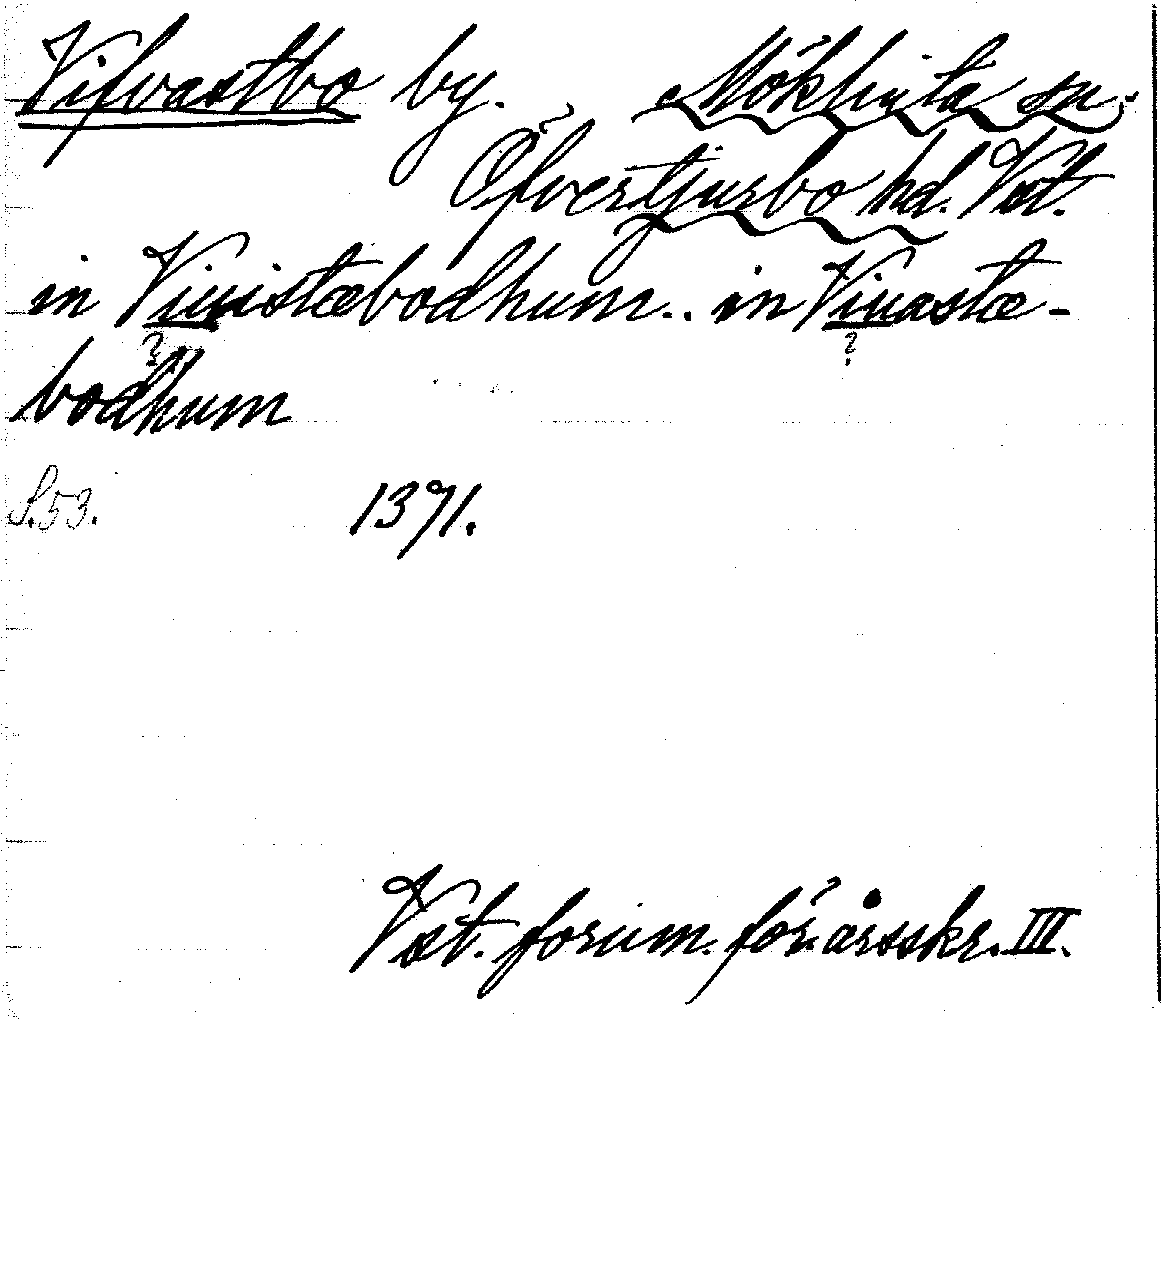 Vifvastbo by. Möklinta sn.
Öfvertjurbo hd. Vst.
in Viuistæbodhum.. in Viuastæ-
? ?
bodhum
S.53. 1371.
Vst. fornm. för:s årsskr. III.